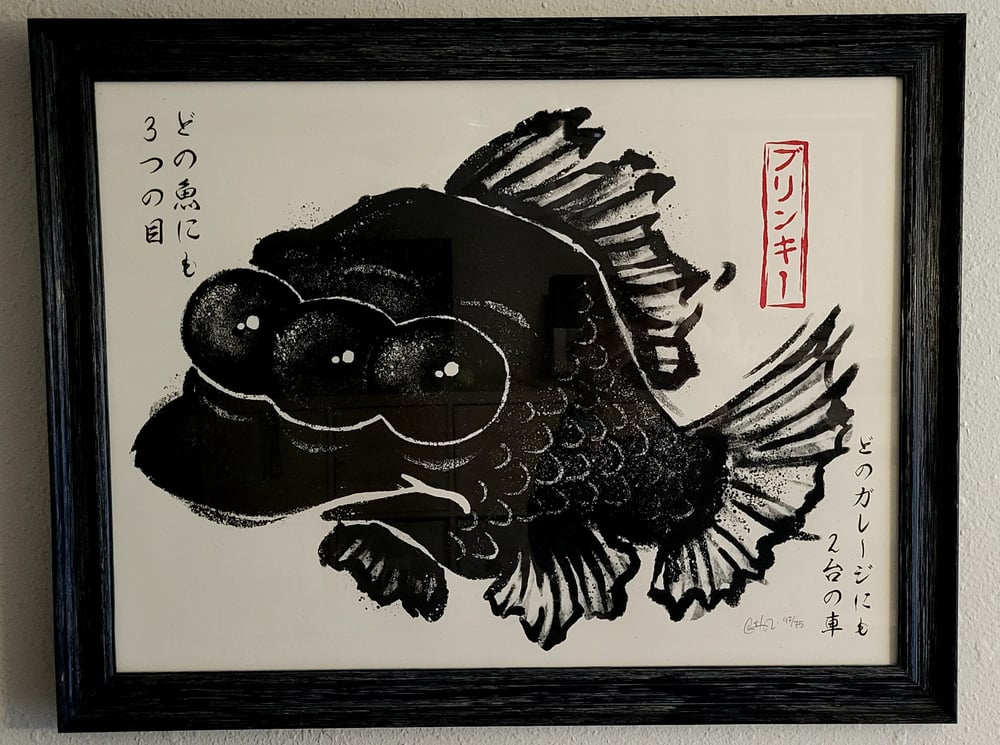 どの魚にも
3つの目
ブリンキー
どのガレージにも
2台の車